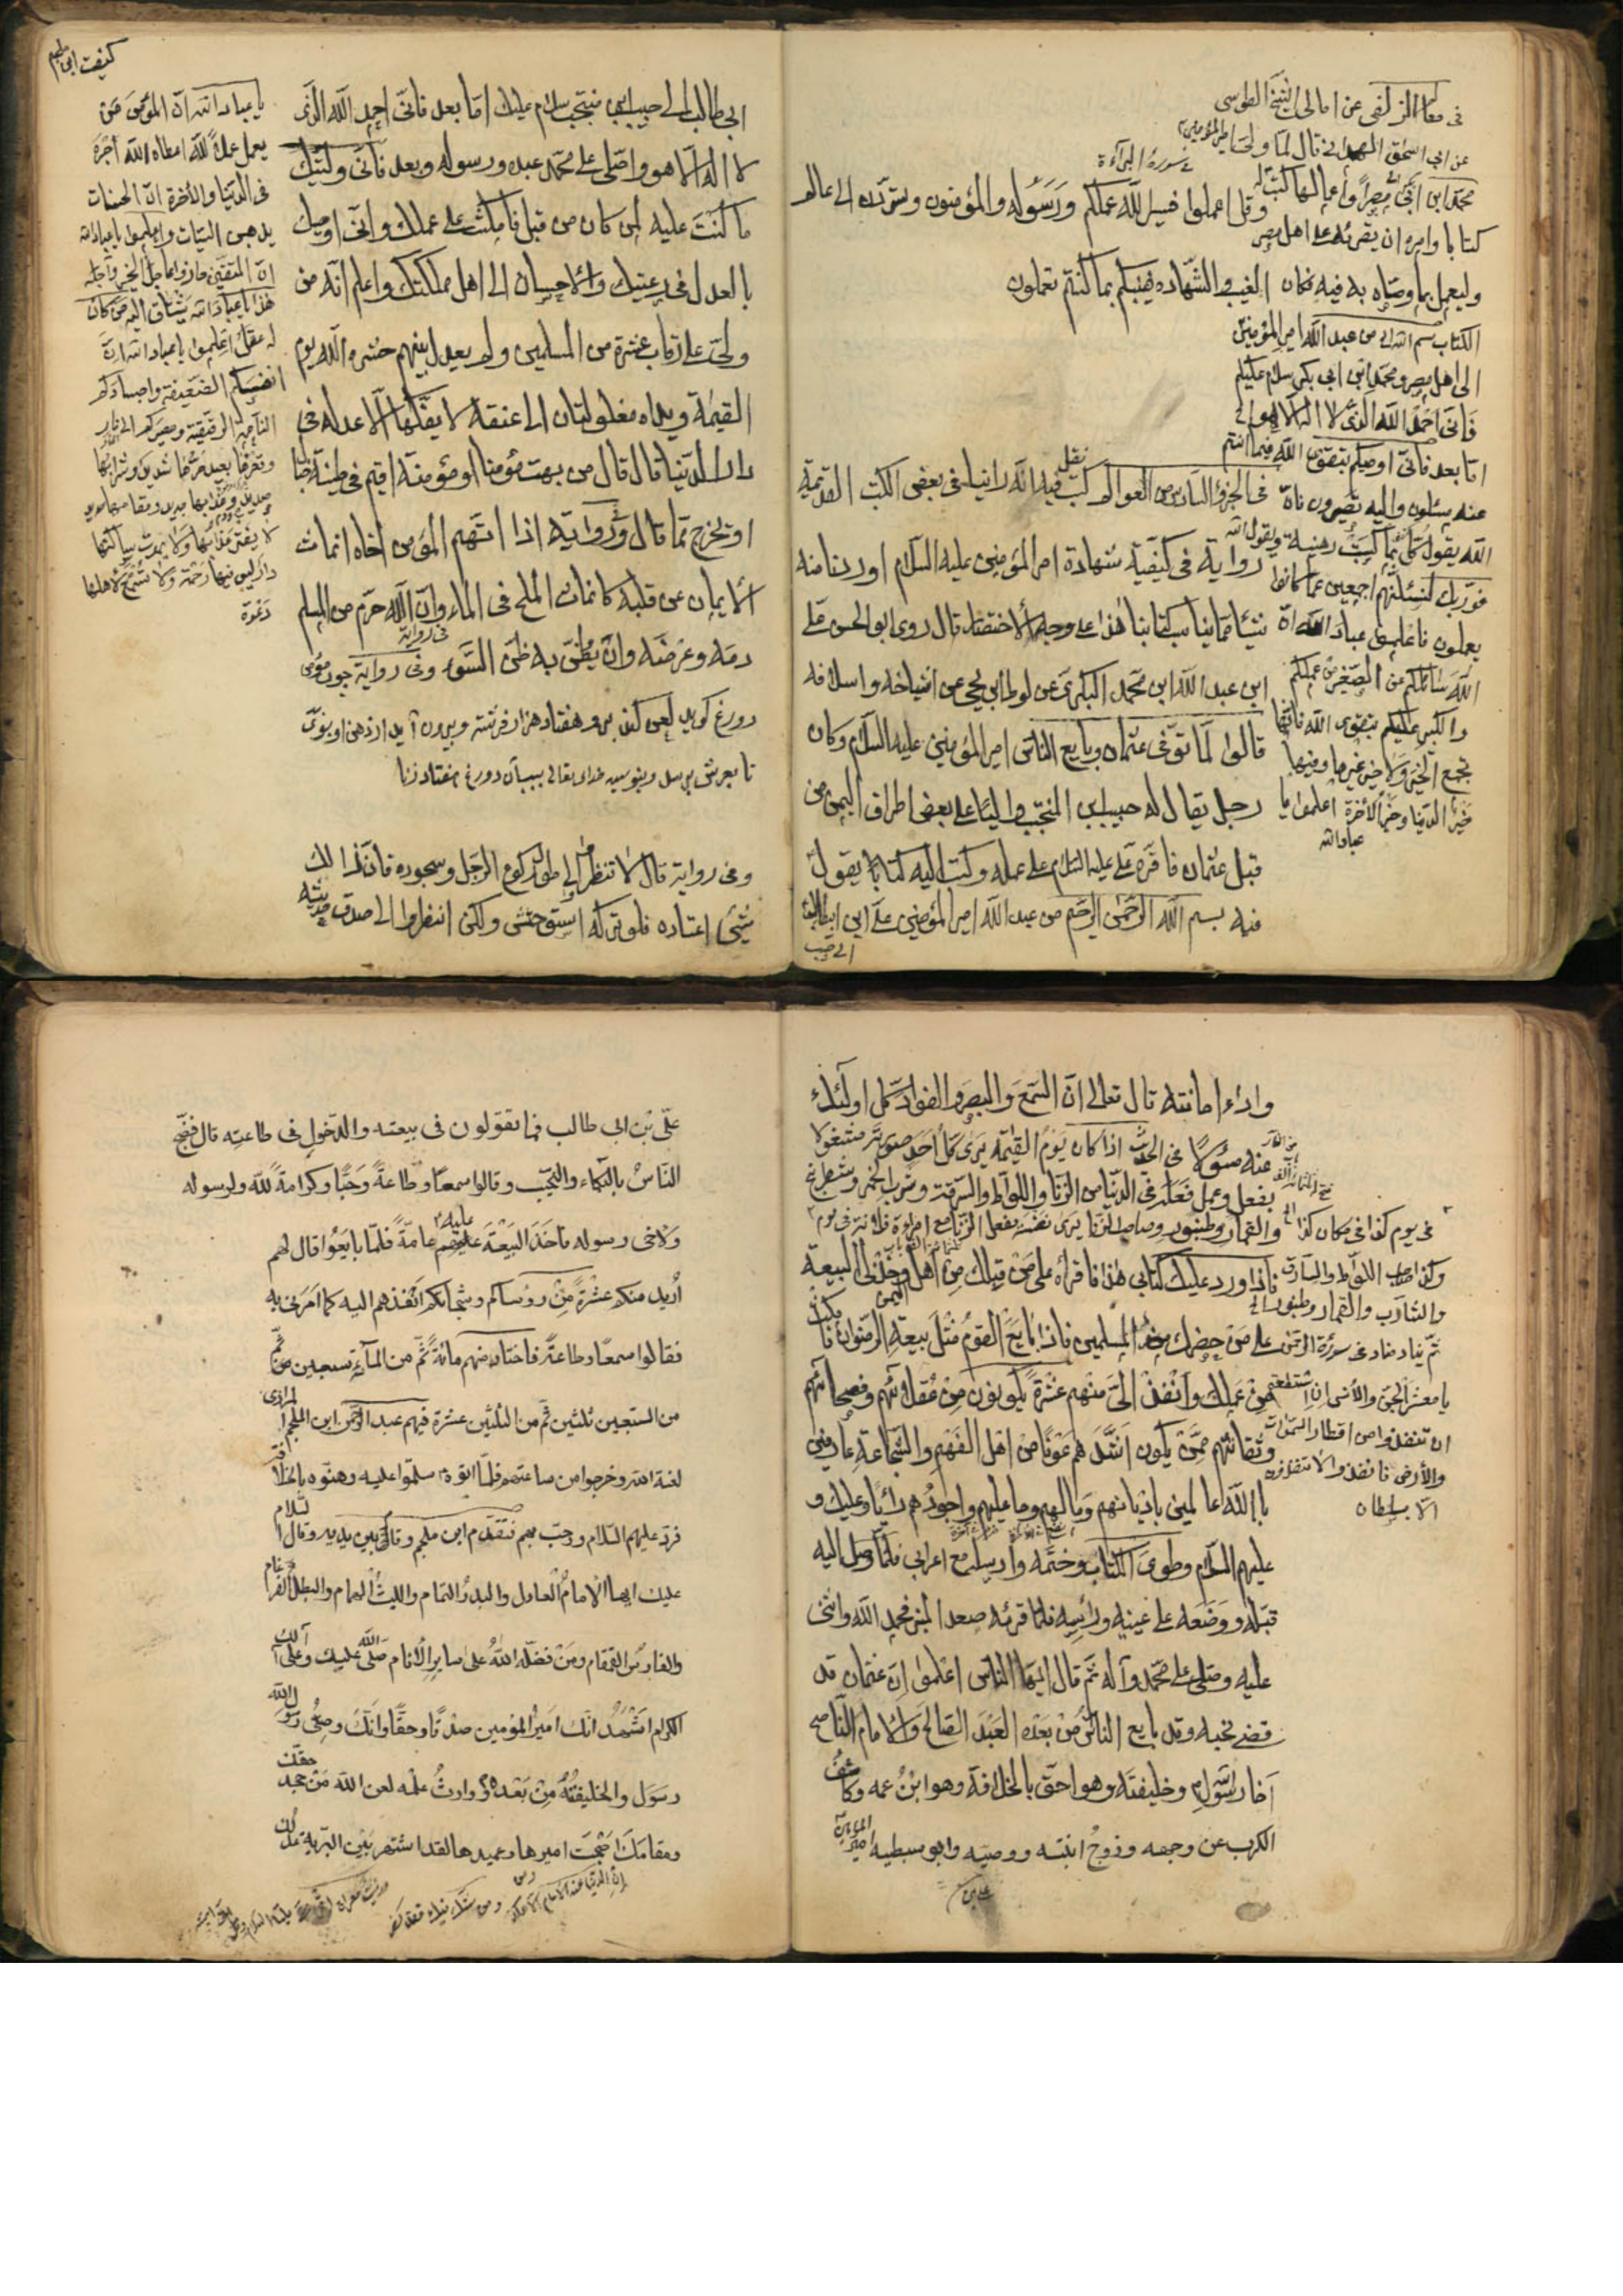 فی معالم الزلفی عن امالی الشیخ الطوسی
عن ابی اسحق الهمدانی قال لما ولی امیرالمؤمنین
محمد ابن ابی بکر مصر واعمالها کتب له
کتابا وامره ان یقرئه علی اهل مصر
ولیعمل بما وصاه به فیه فکان
الکتاب بسم الله الی من عبد الله امیر المؤمنین
الی اهل مصر ومحمد ابن ابی بکر سلام علیکم
فانی احمد الله الذی لا اله الا هو الی
اما بعد فانی اوصیکم بتقوی الله فیما انتم
عنه مسئلون والیه تصیرون فان
الله یقول کل نفس بما کسبت رهینة ویقول الله
فوربک لنسئلنهم اجمعین عما کانوا
یعملون فاعلموا عباد الله ان
الله سائلکم عن الصغیر من عملکم
والکبیر علیکم بتقوی الله فانها
تجمع الخیر ولا خیر غیرها وفیها
خیر الدنیا وخیر الآخرة اعلموا یا
عباد الله
فی سورة البرآءة
وقل اعملوا فسیر الله عملکم ورسوله والمؤمنون وستردون الی عالم
الغیب والشهاده فینبئکم بما کنتم تعملون
فی الجزؤ السادس من العوالم کتب فیه نقل انه راینا فی بعض الکتب القدیمة
روایة فی کیفیة شهادة امیر المؤمنین علیه السلام اوردنا منه
شیئا مما یناسب کتابنا هذا علی وجه الاختصار قال روی ابو الحسن علی
ابن عبد الله ابن محمد البکری عن لوط ابن یحیی عن اشیاخه واسلافه
قالوا لما توفی عثمان وبایع الناس امیر المؤمنین علیه السلام وکان
رجل یقال له حبیب ابن المنتجب والیا علی بعض اطراف الیمن من
قبل عثمان فاقره علی علیه السلام علی عمله وکتب الیه کتابا یقول
فیه بسم الله الرحمن الرحیم من عبد الله امیر المؤمنین علی ابن ابیطالب
الی حبیب
ابی طالب الی حبیب ابن منتجب سلام علیک اما بعد فانی احمد الله الذی
لا اله الا هو واصلی علی محمد عبده ورسوله وبعد فانی ولیتک
ما کنت علیه لمن کان من قبل فامکث علی عملک وانی اوصیک
بالعدل فی رعیتک والاحسان الی اهل مملکتک واعلم انه من
ولی علی رقاب عشرة من المسلمین ولم یعدل بینهم حشره الله یوم
القیمة ویداه مغلولتان الی عنقه لا یفکها الا عدله فی
دار الدنیا قال قال من بهت مؤمنا او مؤمنة اقیم فی طینة خبال
او یخرج مما قال وروایة اذا اتهم المؤمن اخاه انماث
الایمان عن قلبه کانماث الملح فی الماء وان الله حرم من المسلم
دمه وعرضه وان یظن به ظن السوء وفی روایة چون مؤمن
دروغ کوید لعن کنند بر او هفتاد هزار فرشته وبیرون آید از دهن او بوی
تا بعرش برسد وبنویسد خدای تعالی بسبب آن دروغ هفتاد زنا
وفی روایة قال لا تنظروا الی طول رکوع الرجل وسجوده فان ذالک
شیئ اعتاده فلو ترکه استوحش ولکن انظروا الی صدق حدیثه
کیفیت ابن ملجم
یا عباد الله ان المؤمن من
یعمل عملا لله اعطاه الله اجره
فی الدنیا والآخرة ان الحسنات
یذهبن السیئات واعلموا یا عباد الله
ان المتقین حازوا عاجل الخیر وآجله
هذا یا عباد الله یشتاق الیه من کان
له عقل اعلموا یا عباد الله ان
انفسکم الضعیفة واجسادکم
الناعمة الرقیقة ومصیرکم الی نار
وقعرها بعید حرها شدید وشرابها
صدید وعذابها جدید ومقامعها حدید
لا یفتر عذابها ولا یموت ساکنها
دار لیس فیها رحمة ولا تسمع لاهلها
دعوة
واداء امانته قال تعالی ان السمع والبصر والفؤاد کل اولئک
عنه مسئولا فی الحدیث اذا کان یوم القیمة یری کل احد صورته مشغولا
بفعل وعمل فعله فی الدنیا من الزنا واللواط والسرقة وشرب الخمر وشطرنج
والقمار وطنبور وصاحب الزنا یری نفسه یفعل الزنا مع امراءة فلانة فی یوم
فی یوم کذا فی مکان کذا
وکذا صاحب اللواط والسارق
والشارب والقمار وطنبور الی
ثم یناد مناد فی سورة الرحمن
یا معشر الجن والانس ان استطعتم
ان تنفذوا من اقطار السموات
والارض فانفذوا لا تنفذون
الا بسلطان
فاذا ورد علیک کتابی هذا فاقرأه علی من قبلک من اهل الیمن وخذ لی البیعة
علی من حضرک من المسلمین فاذا بایع القوم مثل بیعة الرضوان فامکث
من عملک وانفذ الی منهم عشرة یکونون من عقلائهم وفصحائهم
وثقاتهم ممن یکون اشد هم عونا من اهل الفهم والشجاعة عارفین
باالله عالمین بادیانهم وما لهم وما علیهم واجودهم رأیا وعلیک و
علیهم السلام وطوی الکتاب وختمه وارسله مع اعرابی فلما وصل الیه
قبله ووضعه علی عینیه ورأسه فلما قرئه صعد المنبر فحمد الله واثنی
علیه وصلی علی محمد وآله ثم قال ایها الناس اعلموا ان عثمان قد
قضی نحبه وقد بایع الناس من بعده العبد الصالح والامام الناصح
اخا رسول وخلیفته وهو احق بالخلافة وهو ابن عمه وکاشف
الکرب عن وجهه وزوج ابنته ووصیه وابو سبطیه امیر المؤمنین
علی بن
علی بن ابی طالب فما تقولون فی بیعته والدخول فی طاعته قال فضج
الناس بالبکاء والنحیب وقالوا سمعا وطاعة وحبا وکرامة لله ولرسوله
ولاخی رسوله فاخذ البیعة علیهم عامة فلما بایعوا قال لهم
ارید منکم عشرة من روساکم وشجعانکم انفذهم الیه کما امرنی به
فقالوا سمعا وطاعة فاختار منهم مائة ثم من المآئة سبعین ثم
من السبعین ثلثین ثم من الثلثین عشرة فیهم عبد الرحمن ابن الملجم المرادی
لعنة الله وخرجوا من ساعتهم فلما اتوه سلموا علیه وهنوه بالخلافة
فرد علیهم السلام ورحب بهم فتقدم ابن ملجم وقام بین یدیه وقال السلام
علیک ایها الامام العادل والبدر التمام واللیث الهمام والبطل الضرغام
والفارس القمقام ومن فضله الله علی سایر الانام صلی الله علیک وعلی آلک
الکرام اشهد انک امیر المؤمنین صدقا وحقا وانک وصی رسول الله
رسول والخلیفة من بعده ووارث علمه لعن الله من جحد حقک
ومقامک اصبحت امیرها وعمیدها لقد اشتهر بین البریة عدلک